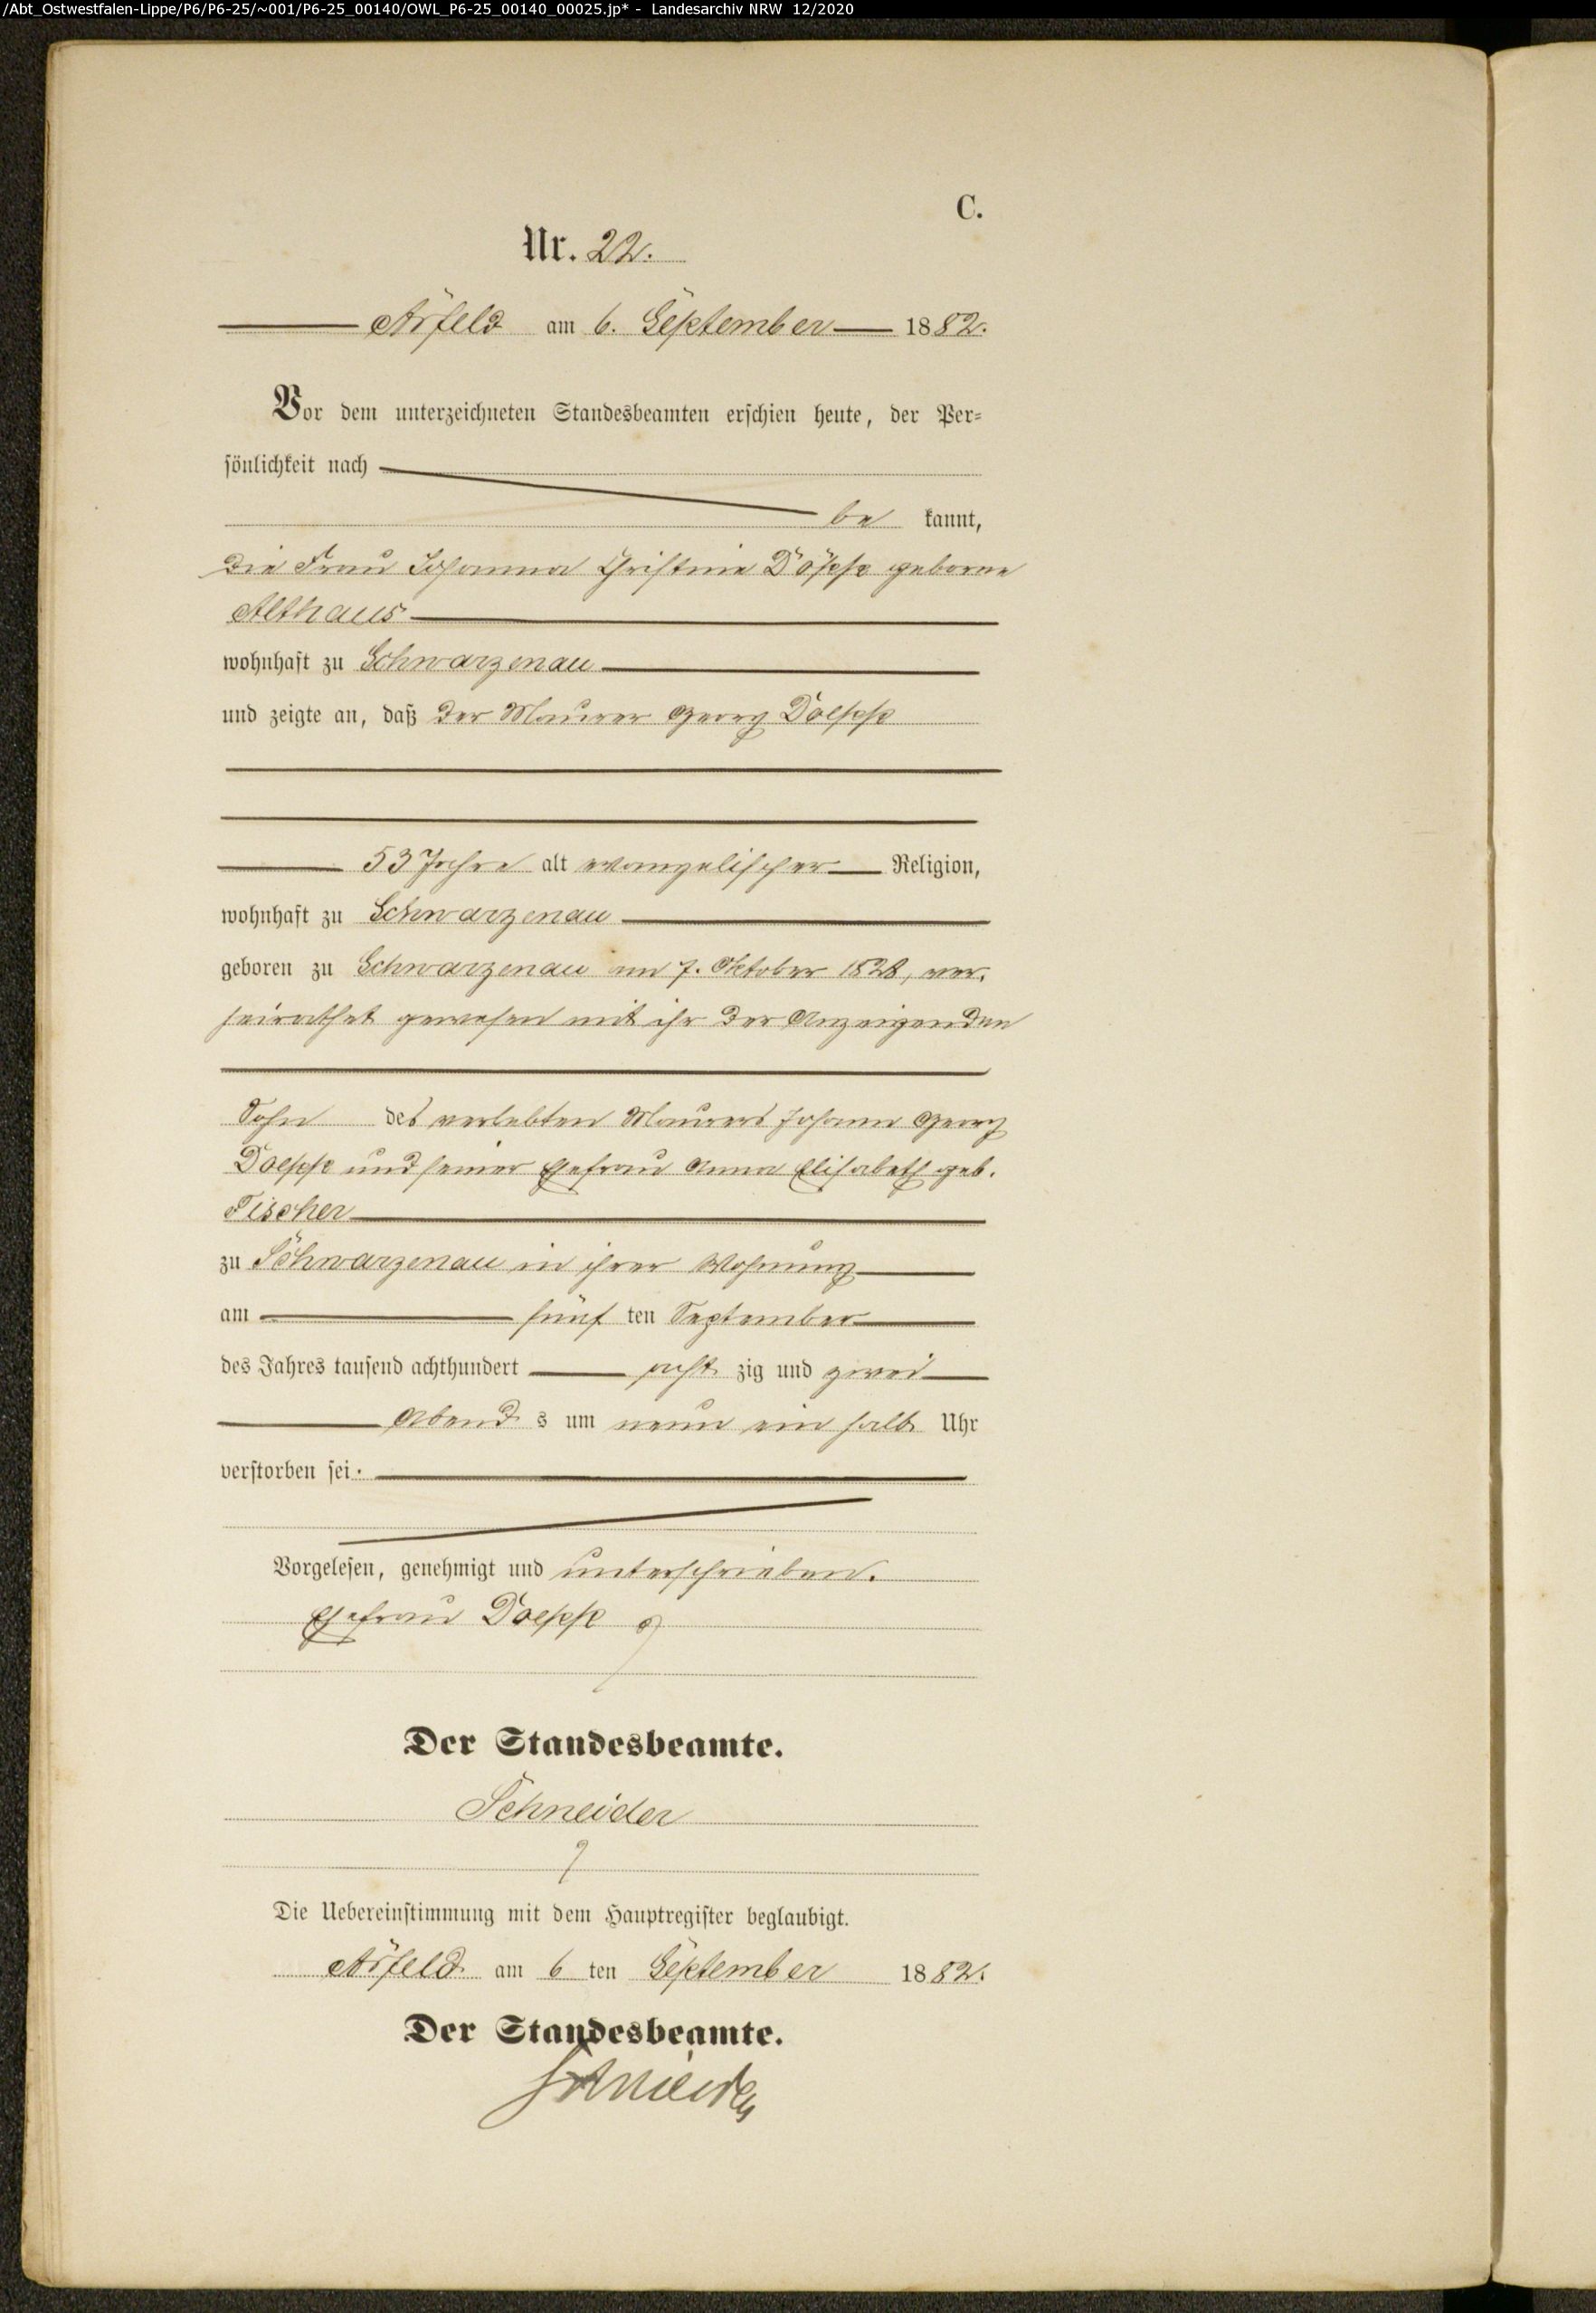 /Abt_Ostwestfalen-Lippe/P6/P6-25/~001/P6-25_00140/OWL_P6-25_00140_00025.jp* - Landesarchiv NRW 12/2020
C.
Nr. 22.
Arfeld am 6. September 1882.
Vor dem unterzeichneten Standesbeamten erschien heute, der Per-
sönlichkeit nach
be kannt,
die Frau Johanna Christine Döpp geborne
Althaus
wohnhaft zu Schwarzenau
und zeigte an, daß der Maurer Georg Doepp
53 Jahre alt evangelischer Religion,
wohnhaft zu Schwarzenau
geboren zu Schwarzenau am 7. Oktober 1828, ver-
heirathet gewesen mit ihr der Anzeigenden
Sohn des verlebten Maurers Johann Georg
Doepp und seiner Ehefrau Anna Elisabeth geb.
Fischer
zu Schwarzenau in ihrer Wohnung
am fünf ten September
des Jahres tausend achthundert acht zig und zwei
Abend s um neun ein halb Uhr
verstorben sei.
Vorgelesen, genehmigt und unterschrieben.
Ehefrau Doepp
Der Standesbeamte.
Schneider
Die Uebereinstimmung mit dem Hauptregister beglaubigt.
Arfeld am 6 ten September 1882.
Der Standesbeamte.
Schneider